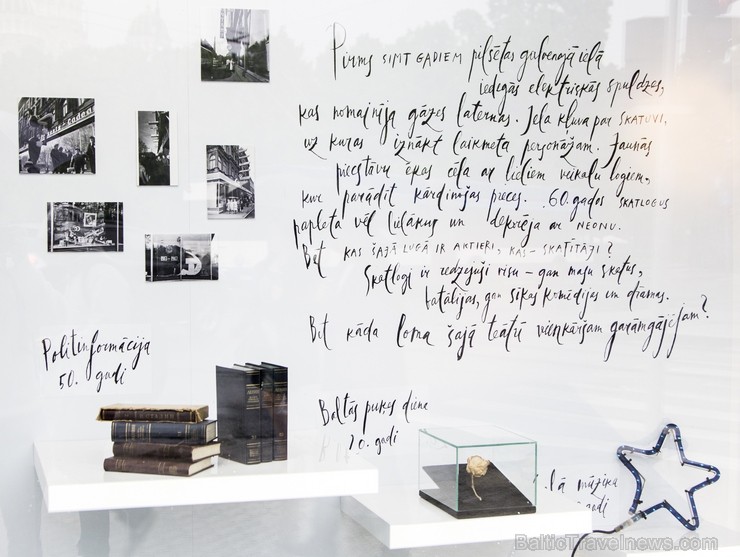 Pirms SIMT GADIEM pilsētas galvenajā ielā
iededzās elektriskās spuldzes,
kas nomainīja gāzes laternas. Iela kļuva par SKATUVI,
uz kuras iznākt laikmeta personāžam. Jaunās
piecstāvu ēkas cēla ar lieliem veikalu logiem,
kur parādīt kārdinošas preces. 60.gados SKATLOGUS
paplēta vēl lielākus un dekorēja ar NEONU.
Bet KAS ŠAJĀ LUGĀ IR AKTIERI, KAS - SKATĪTĀJI?
Skatlogi ir redzējuši visu - gan mazu skatus,
batālijas, gan sīkas komēdijas un drāmas.
Bet kāda loma šajā teātrī vienkāršam garāmgājējam?
Politinformācija
50. gadi
Baltās puķes diena
20. gadi
mūzika
gadi
BalticTravelnews.com ©